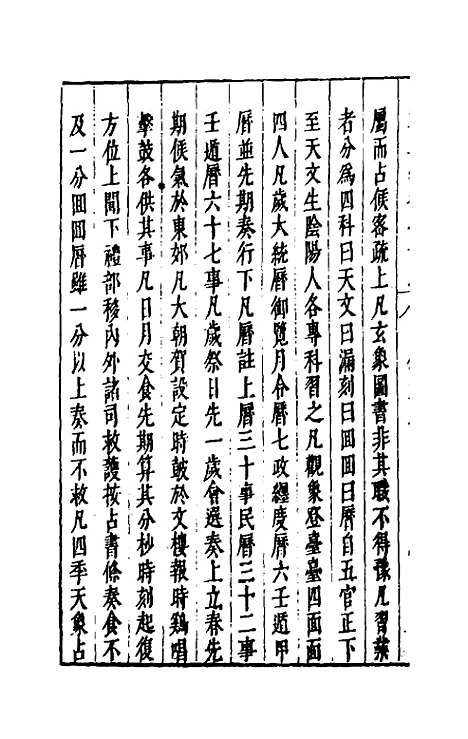 屬而占候密疏上凡玄象圖書非其職不得豫凡習業
者分爲四科曰天文曰漏刻曰囬囬曰曆自五官正下
至天文生陰陽人各專科習之凡觀象登臺臺四面面
四人凡歲大統曆御覽月令曆七政纏度曆六壬遁甲
曆並先期奏行下凡曆註上曆三十事民曆三十二事
壬遁曆六十七事凡歲祭日先一歲會選奏上立春先
期候氣於東郊凡大朝賀設定時皷於文樓報時鷄唱
擊鼓各供其事凡日月交食先期算其分杪時刻起復
方位上聞下禮部移內外諸司救護按占書條奏食不
及一分囬囬曆雖一分以上奏而不救凡四季天象占